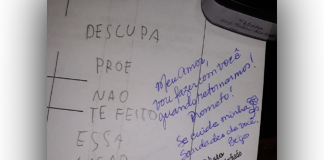 DESCUPA
PROE
NAO
TE FEITO
ESSA
Meu Amor,
vou fazer com você
quando retornarmos!
Prometo!
Se cuida minha
Saudades de você.
Bejo